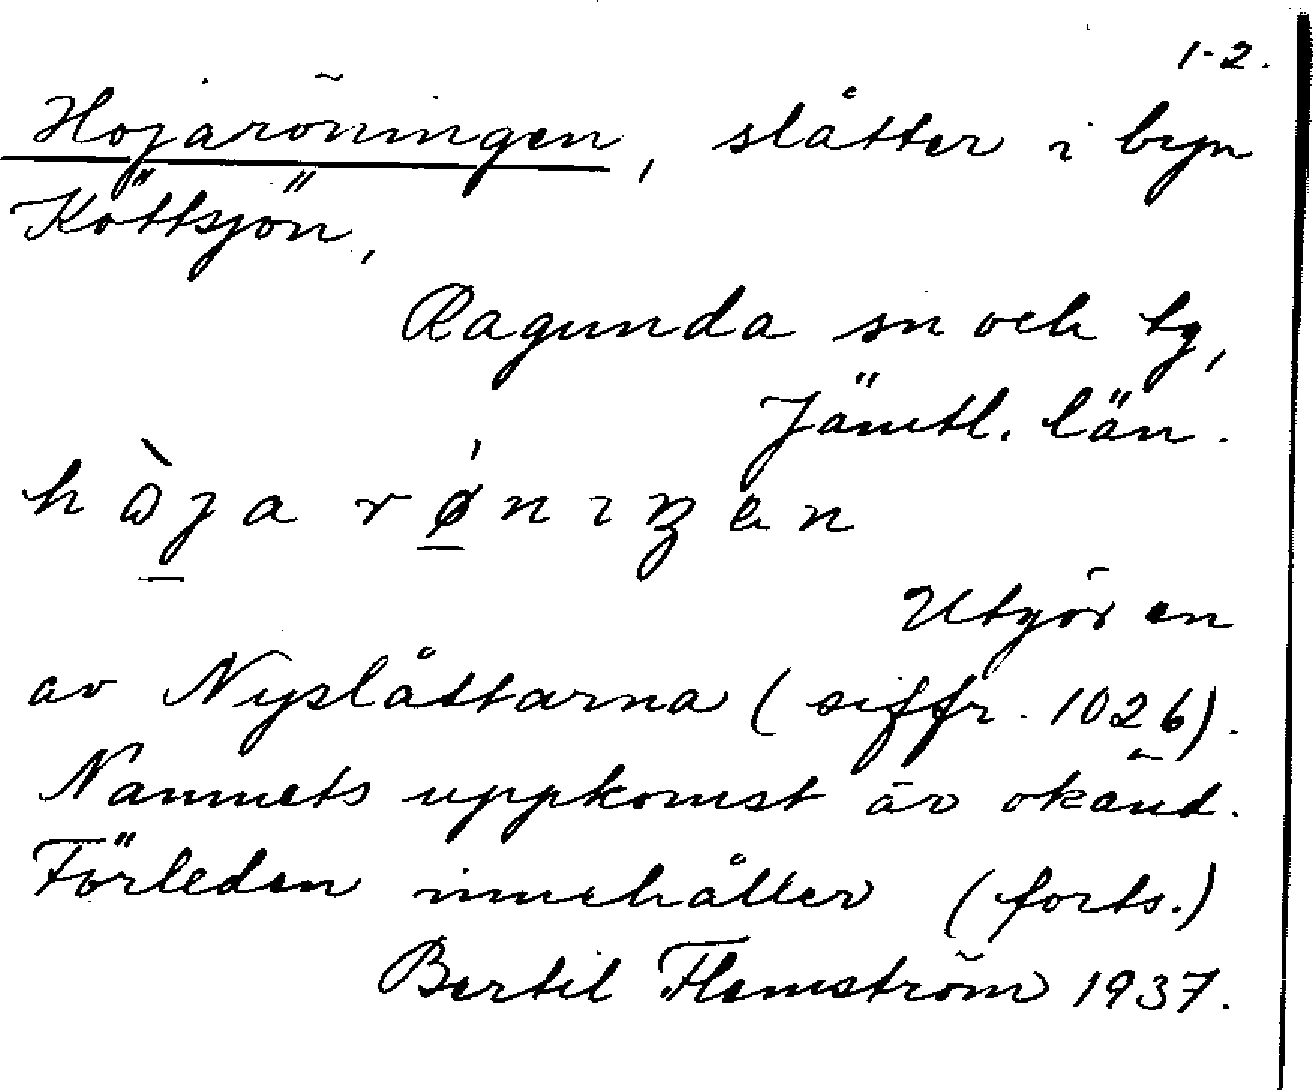 1-2.
Hojaröningen, slåtter i byn
Köttsjön,
Ragunda sn och tg,
Jämtl. län.
hɔ̀ja rǿnıŋen
Utgör en
av Nyslåttarna (siffr. 1026).
Namnets uppkomst är okänd.
Förleden innehåller (forts.)
Bertil Flemström 1937.